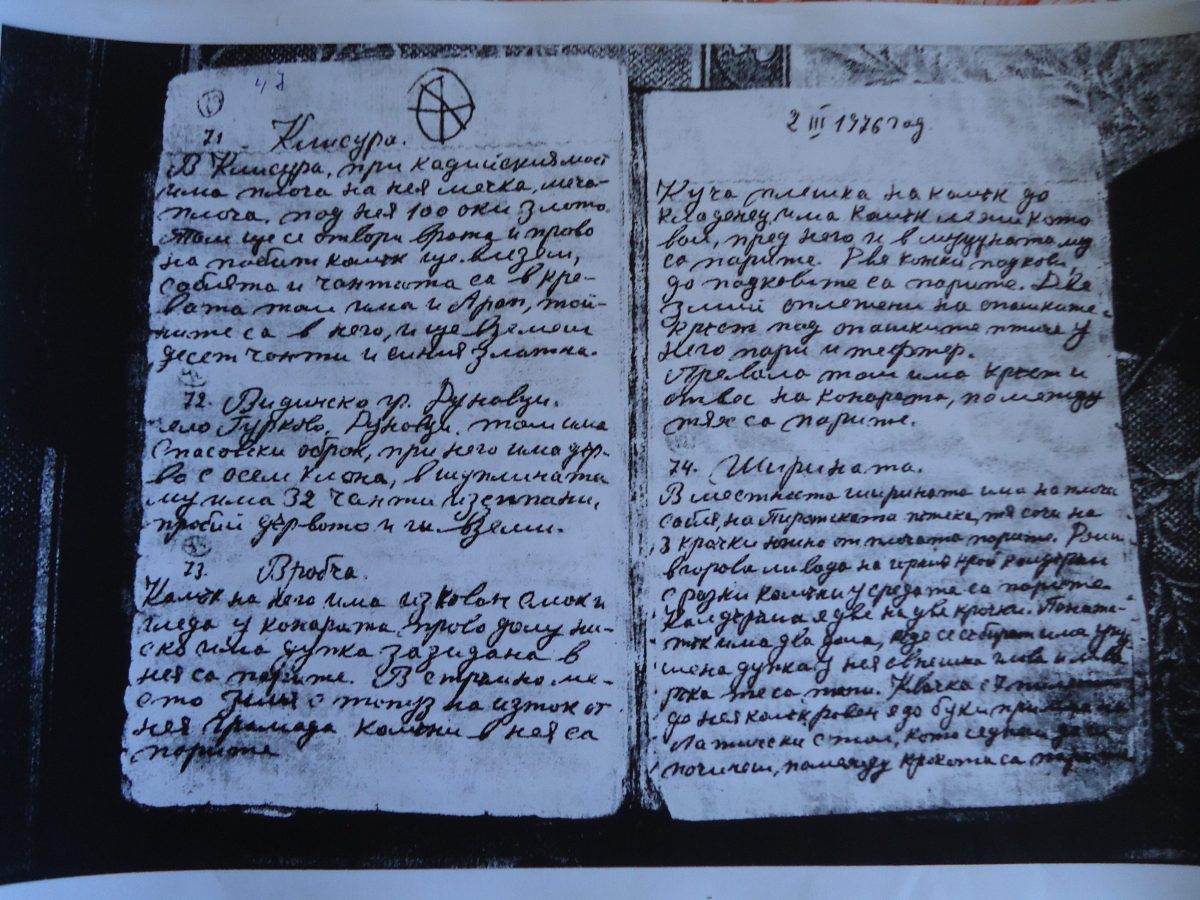 47
71. Клисура.
В Клисура, при кадийския мост
има плоча на нея мечка, меча
плоча. под нея 100 оки злото.
Там ще се отвори врата и право
на побит камък ще влезеш,
сабята и чантата са в кре-
вата там има и Арап,
ните са в него, и ще вземеш
десет чанти и синия златна.
72. Видинско гр. Дуновци.
село Гурково, Дуновци, там има
спасовски оброк, при него има дър-
во с осем клона, в шуплината
му има 32 чанти изсипани,
пробий дървото и ги вземи.
73. Вробча.
Камък на него има изкован смок и
гледа у копарата, право долу ни-
ско има дупка зазидана в
нея са парите. В страно ме-
сто змия с топуз на изток от
нея грамада камъни в нея са
парите
2 III 1976 год.
Куча плешка на камък до
кладенец има камък легнал като
вол, пред него и в мудуната му
са парите. Две кожки подкови,
до подковите са парите. Две
змии сплетени на опашките
кръст под опашките птица у
него пари и тефтер.
Превала там има кръст и
отвес на копарата, помежду
тях са парите.
74. Ширината.
В местността ширината има на плоча
сабя, на Пиротската потека, тя сочи на
3 крачки южно от плочата парите.
ливада на горния край калдаръм
с разки камъни у средата са парите
калдаръма е две на две крачки. Пона-
тък има два дола, где се събират има
дупка у нея
са там. Квачка с 7
до нея камък до буки
стол, като седнеш да си
починеш, помежду краката са